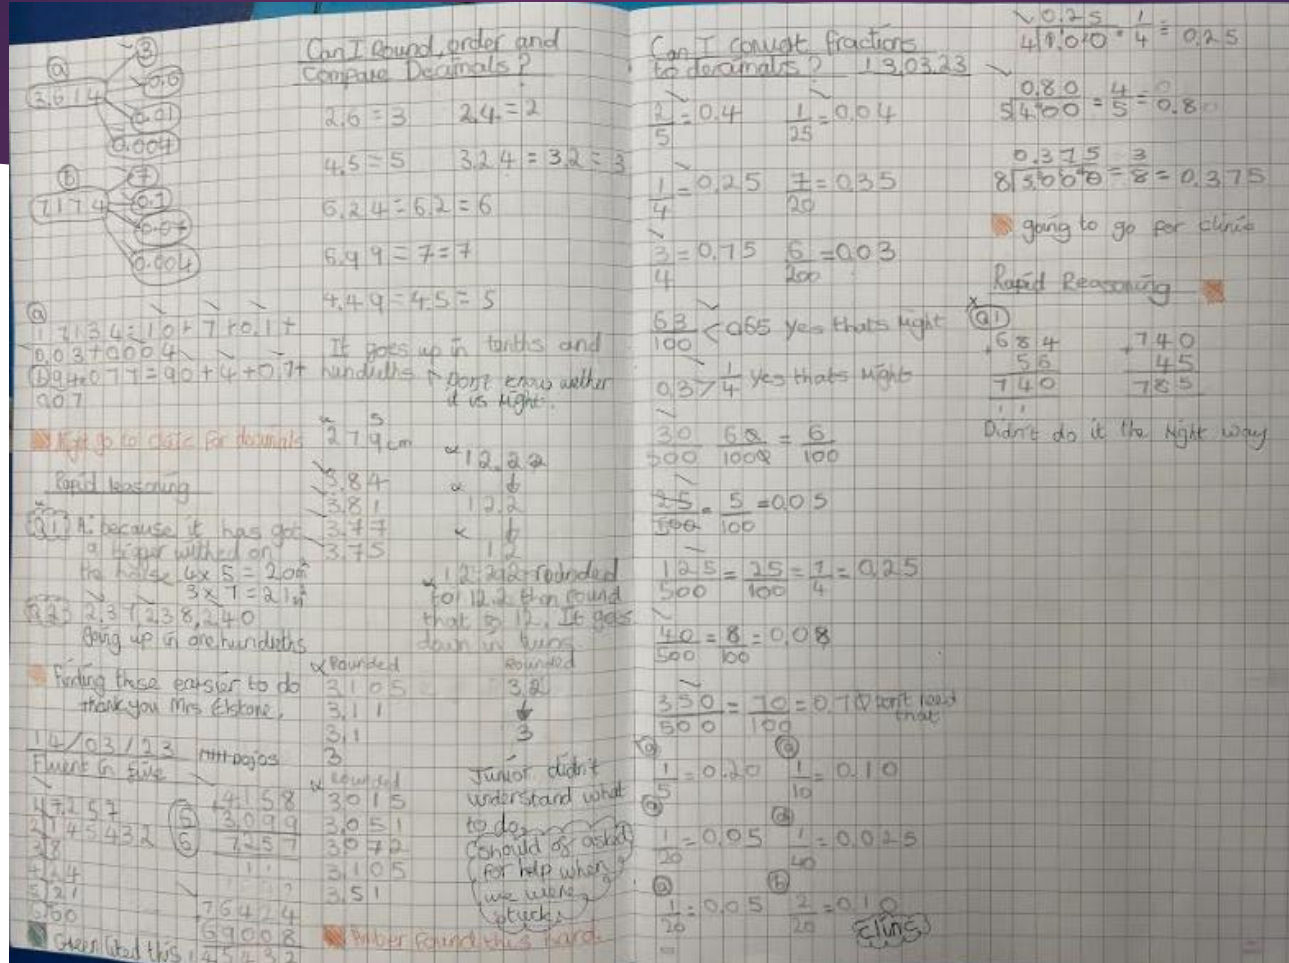 a
3
3.614
0.6
0.01
0.004
b
7
7.174
0.1
0.07
0.004
a
17.134=10+7+0.1+
0.03+0.004
b 94.077=90+4+0.7+
0.07
Might go to clinic for decimals
Rapid reasoning
Q1 A: because it has got
a
on
the house 4x5=20m²
3x7=21m²
Q2 2.37, 2.38, 2.40
going up in one hundreths
Finding these earsier to do
thank you Mrs
14/03/23 dojos
Fluent in five
1 47,257
2 145432
3 8
4 24
5 21
6 60
Green liked this
Can I Round, order and
Compare Decimals?
2.6=3 2.4=2
4.5=5 3.24=3.2=3
6.24=6.2=6
6.99=7=7
4.49=4.5=5
It goes up in tenths and
hundreths Don't know wether
it is right.
5
279cm
3.84
3.81
3.77
3.75
12.22
12.2
12
12.22 rounded
to 12.2 then round
that is 12. It goes
down in
Rounded
3.105
3.11
3.1
3
Rounded
3.2
3
Rounded
3.015
3.051
3.072
3.105
3.51
Junior didn't
understand what
to do
Should of asked
for help when
we were
stuck.
5
4158
3099
6
7257
76424
69008
145432
Amber found this hard.
Can I convert fractions
to decimals? 13.03.23
2/5=0.4 1/25=0.04
1/4=0.25 7/20=0.35
3/4=0.75 6/200=0.03
63/100<0.65 yes thats right
0.37>1/4 yes thats right
30/500 60/1000=6/100
25/500=5/100=0.05
125/500=25/100=1/4=0.25
40/500=8/100=0.08
350/500=70/100=0.70 Don't need
that
a 1/5=0.20 a 1/10=0.10
a 1/20=0.05 d 1/40=0.025
a 1/20=0.05 b 2/20=0.10
0.25
4 1.00 1/4=0.25
0.80
5 4.00=4/5=0.80
0.375
8 3.000=3/8=0.375
going to go for clinic
Rapid Reasoning
Q1
684 740
+56 +45
740 785
Didn't do it the right way